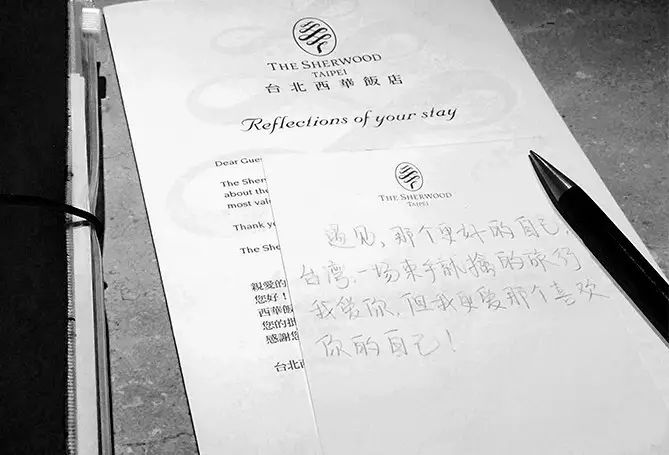 THE SHERWOOD
TAIPEI
台北西華飯店
Reflections of your stay
Dear Gue
The Sher
about the
most val
Thank y
The She
親愛的
您好！
西華飯
您的批
感謝您
台北西
THE SHERWOOD
TAIPEI
遇见，那个更好的自己，
台湾，一场束手就擒的旅行
我爱你，但我更爱那个喜欢
你的自己！